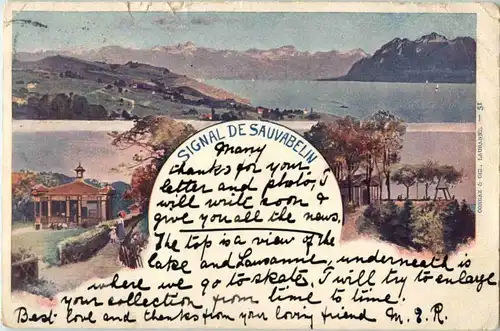 SIGNAL DE SAUVABELIN
Many
thanks for your
letter and photos, I
will write soon &
give you all the news.
The top is a view of the
lake and Lausanne, underneath is
where we go to skate, I will try to enlarge
your collection from time to time.
Best love and thanks from your loving friend M. G. R.
& CIE, LAUSANNE. — 51